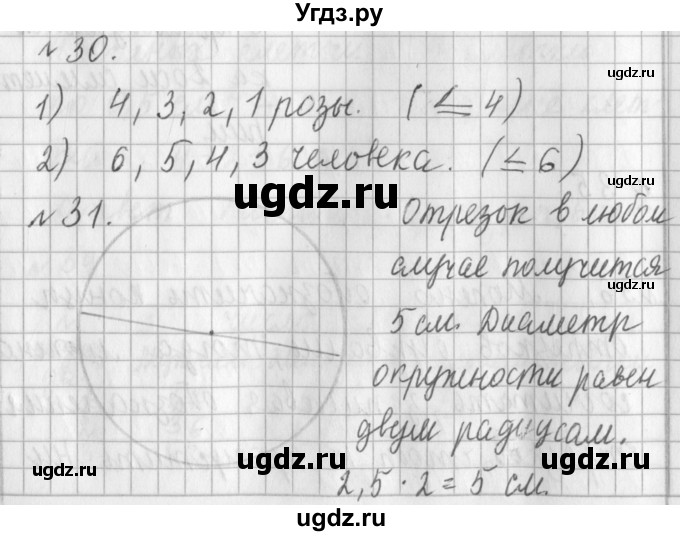 Угдз.ру
№30.
ugdz.ru ugdz.ru
1) 4, 3, 2, 1 розы. (≤ 4)
2) 6, 5, 4, 3 человека. (≤ 6)
ugdz.ru ugdz.ru
№31.
Отрезок в любом
случае получится
ugdz.ru ugdz.ru
5 см. Диаметр
окружности равен
ugdz.ru ugdz.ru
двум радиусам.
ugdz.ru ugdz.ru
2,5 · 2 = 5 см.
ugdz.ru